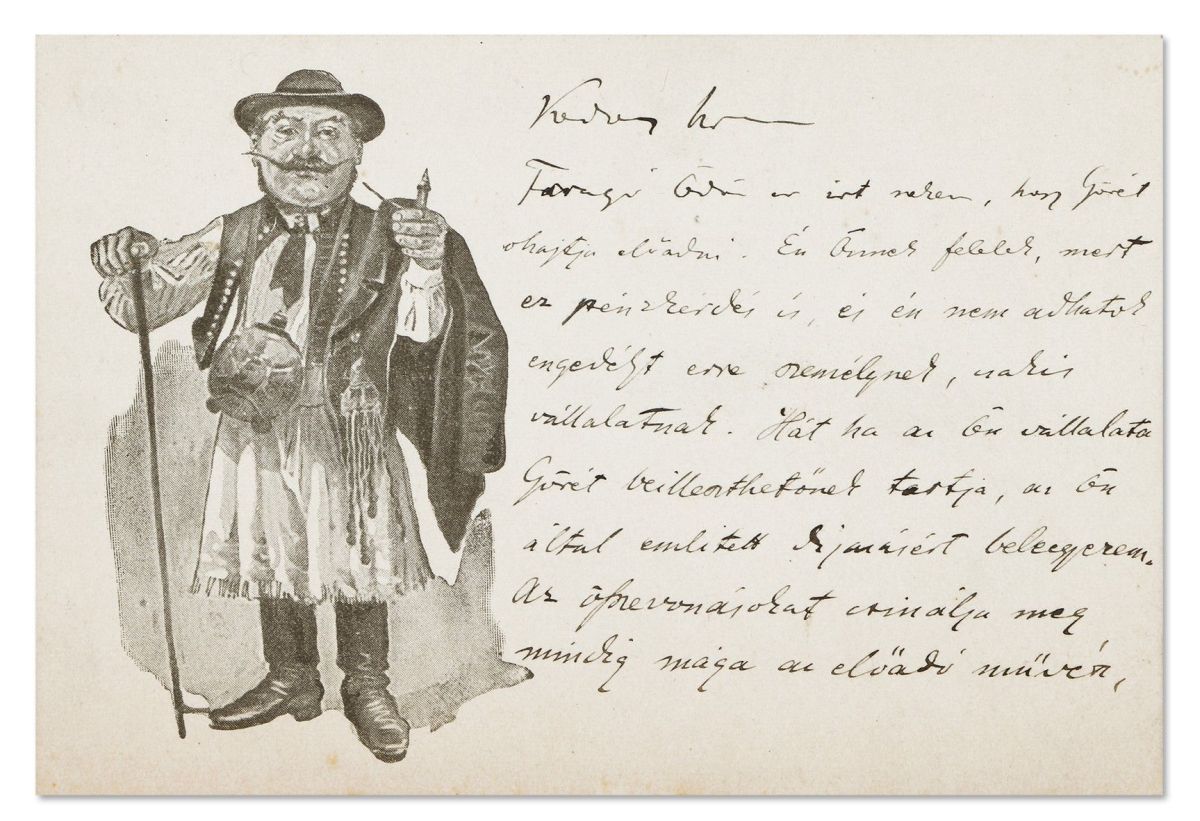 Kedves
Faragó Ödön úr irt nekem, hogy Gőrét
ohajtja előadni. Én Önnek felelek, mert
ez pénzkérdés is, és én nem adhatok
engedélyt erre személynek, csakis
vállalatnak. Hát ha az Ön vállalata
Gőrét beilleszthetőnek tartja, az Ön
által emlitett dijazásért beleegyezem.
Az összevonásokat csinálja meg
mindig maga az előadó művész,